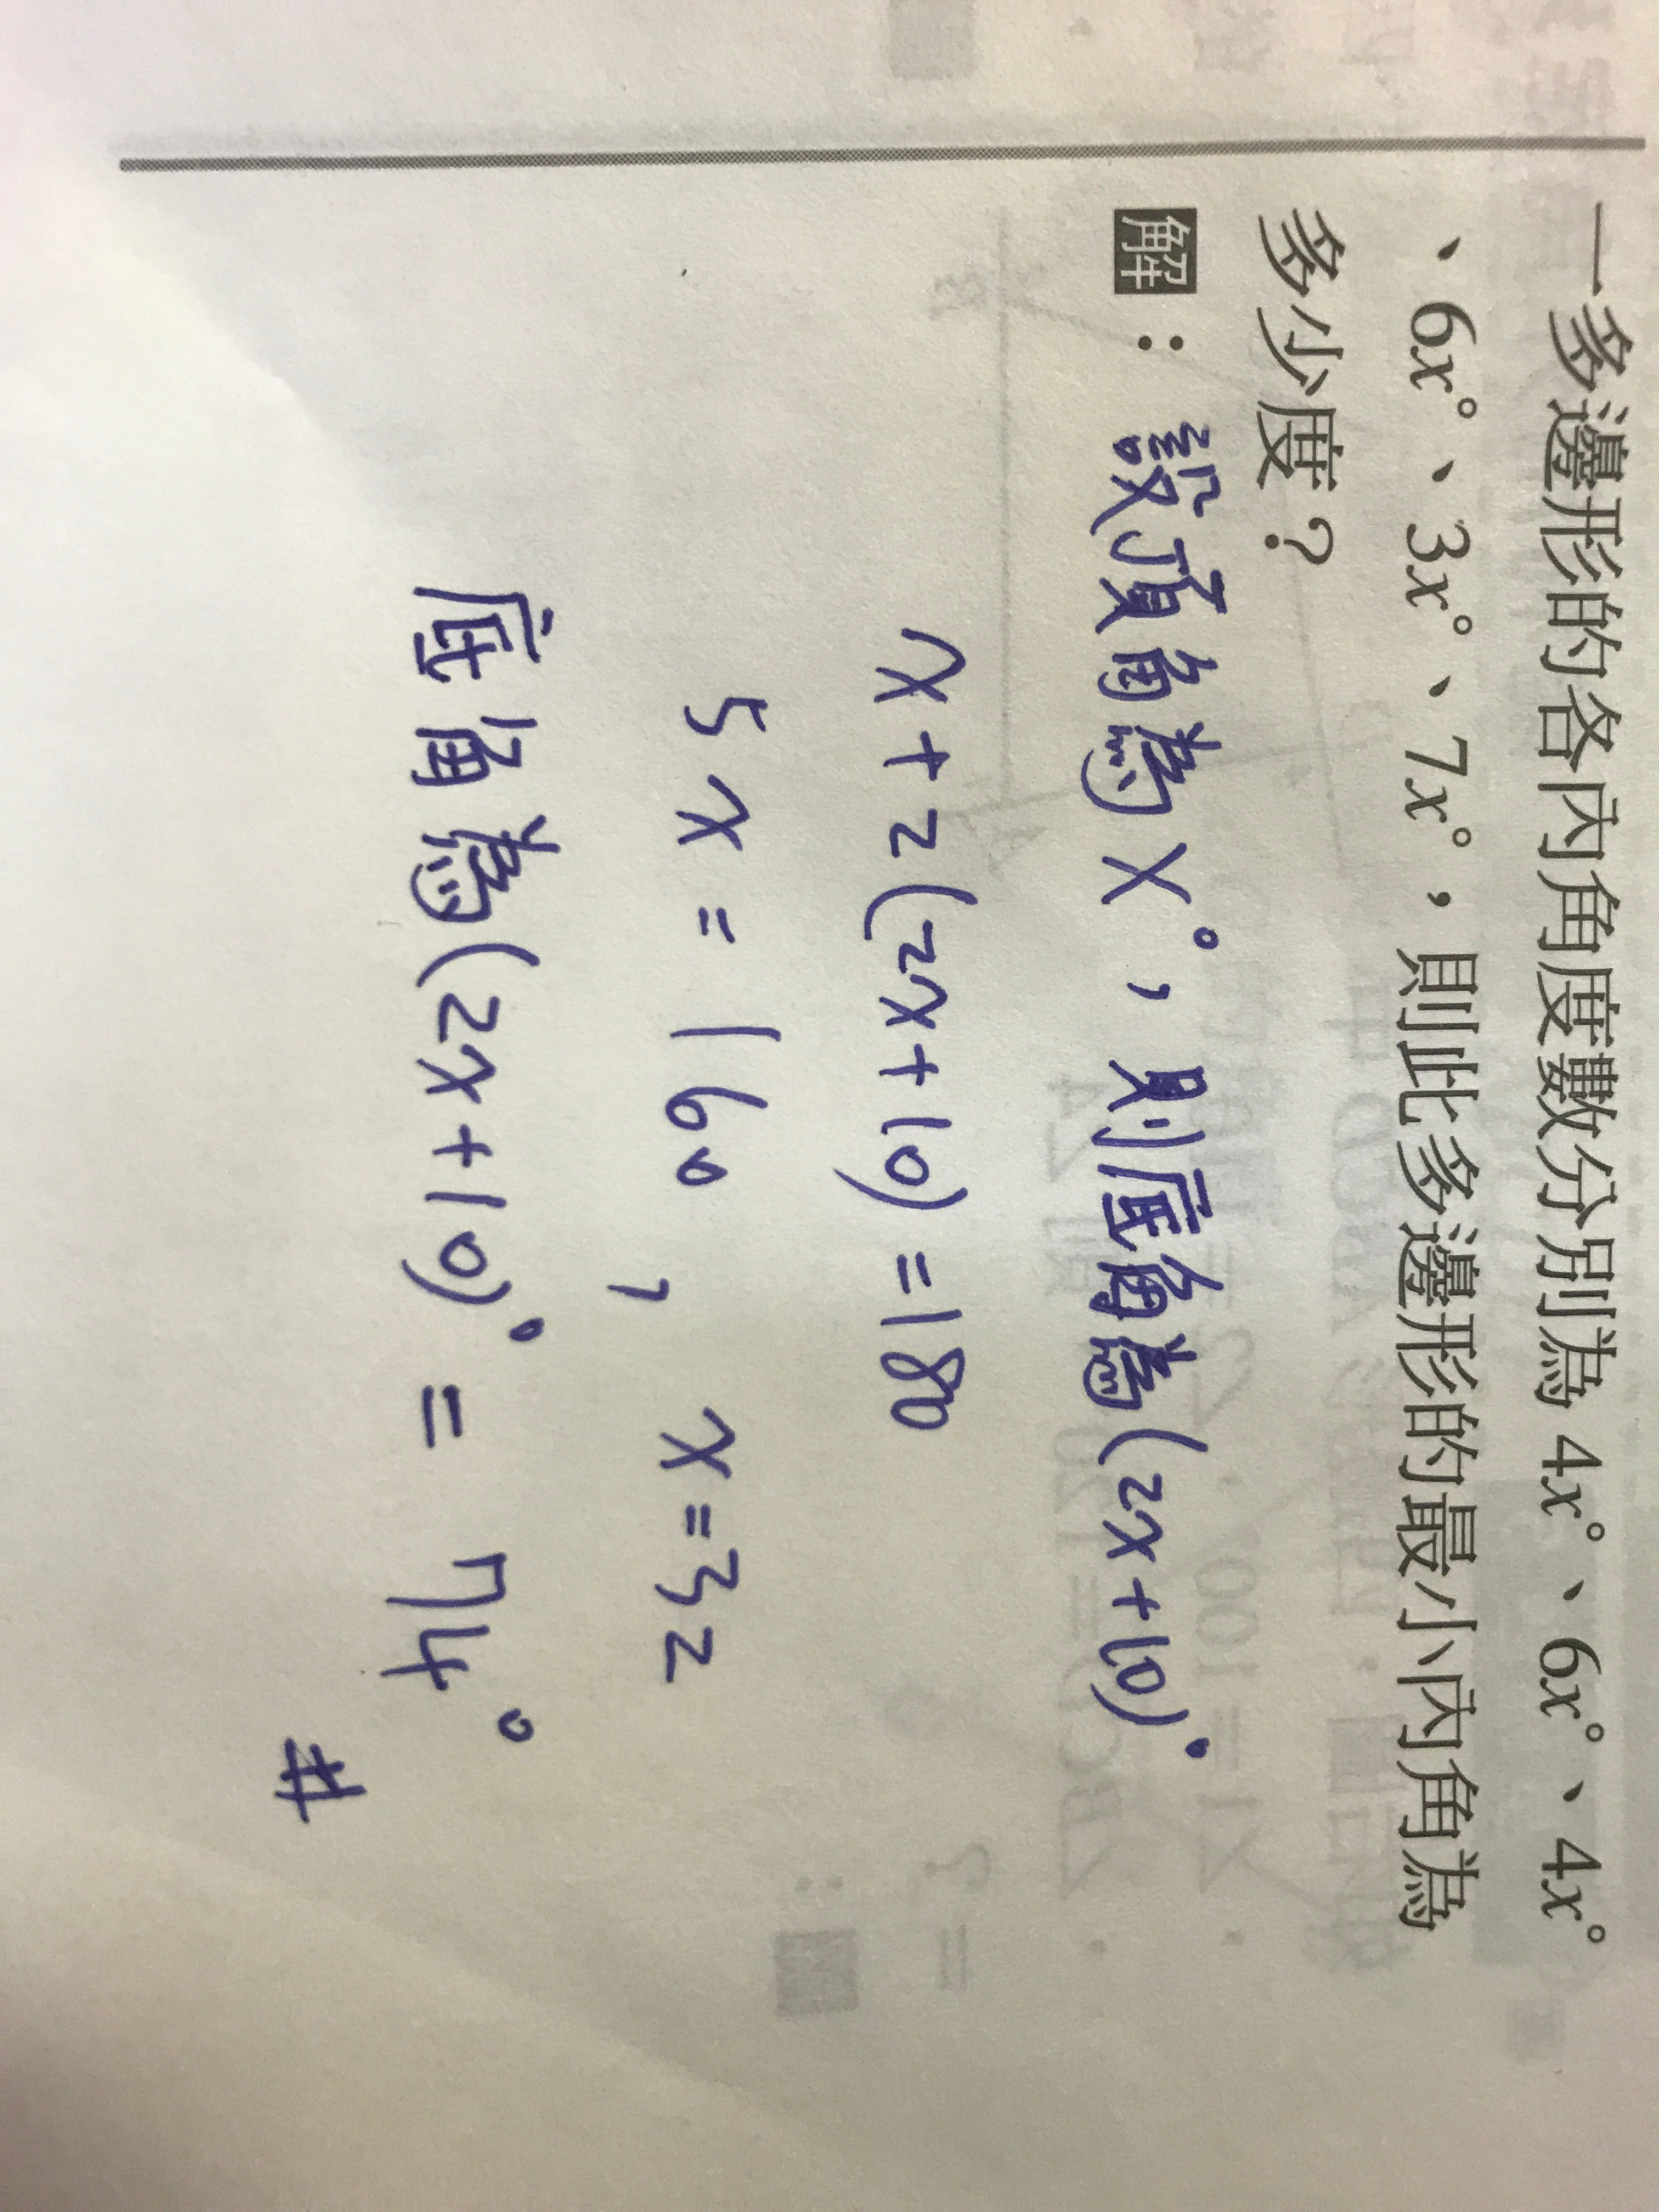 一多邊形的各內角度數分別為 4x°、6x°、4x°
、6x°、3x°、7x°，則此多邊形的最小內角為
多少度？
解： 設頂角為x°，則底角為(2x+10)°
x+2(2x+10)=180
5x=160 , x=32
底角為(2x+10)°=74°
#